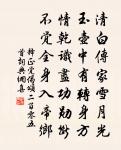 清白傳家雪月光
玉壺中有轉身方
情乾識盡功勛斷
不覺全身入帝鄉
釋正覺偈頌二百零五
首詞典網集